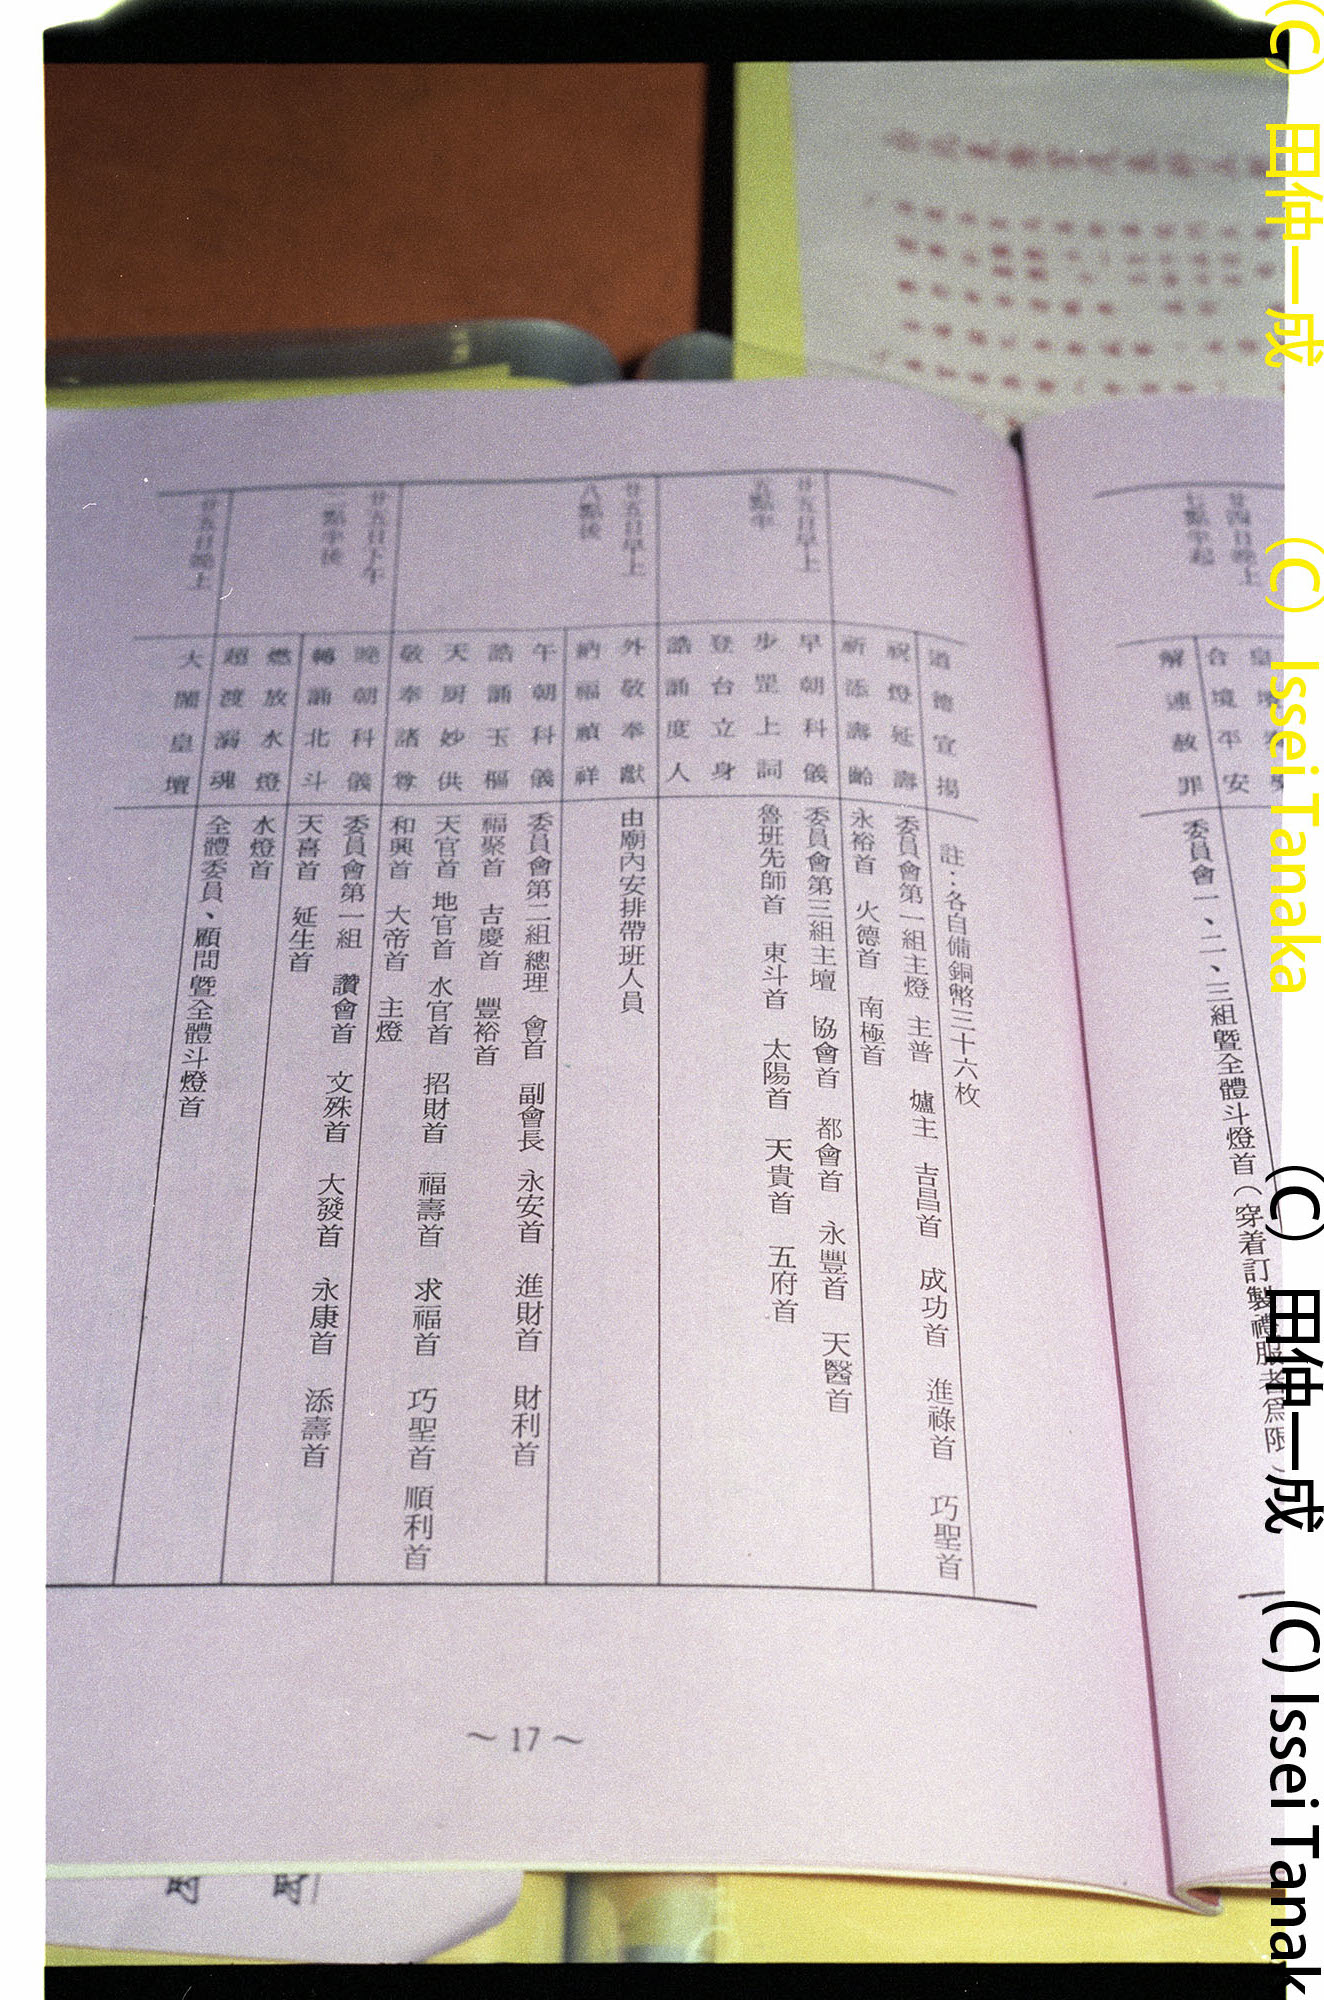 廿四日晚上
七點半起
合境平安
解連赦罪
委員會一、二、三組暨全體斗燈首（穿着訂製禮服者為限）
道德宣揚
註：各自備銅幣三十六枚
祝燈延壽
委員會第一組主燈 主普 爐主 吉昌首 成功首 進祿首 巧聖首
祈添壽齡
永裕首 火德首 南極首
廿五日早上
五點半
早朝科儀
委員會第三組主壇 協會首 都會首 永豐首 天醫首
步罡上詞
魯班先師首 東斗首 太陽首 天貴首 五府首
登台立身
誥誦度人
廿五日早上
八點後
外敬奉獻
由廟內安排帶班人員
納福禎祥
午朝科儀
委員會第二組總理 會首 副會長 永安首 進財首 財利首
誥誦玉樞
福聚首 吉慶首 豐裕首
天廚妙供
天官首 地官首 水官首 招財首 福壽首 求福首 巧聖首 順利首
敬奉諸尊
和興首 大帝首 主燈
廿五日下午
二點半後
晚朝科儀
委員會第一組 讚會首 文殊首 大發首 永康首 添壽首
轉誦北斗
天喜首 延生首
燃放水燈
水燈首
超渡溺魂
全體委員、顧問暨全體斗燈首
廿五日晚上
大鬧皇壇
～17～
(C) 田仲一成 (C) Issei Tanaka
(C) 田仲一成 (C) Issei Tanak